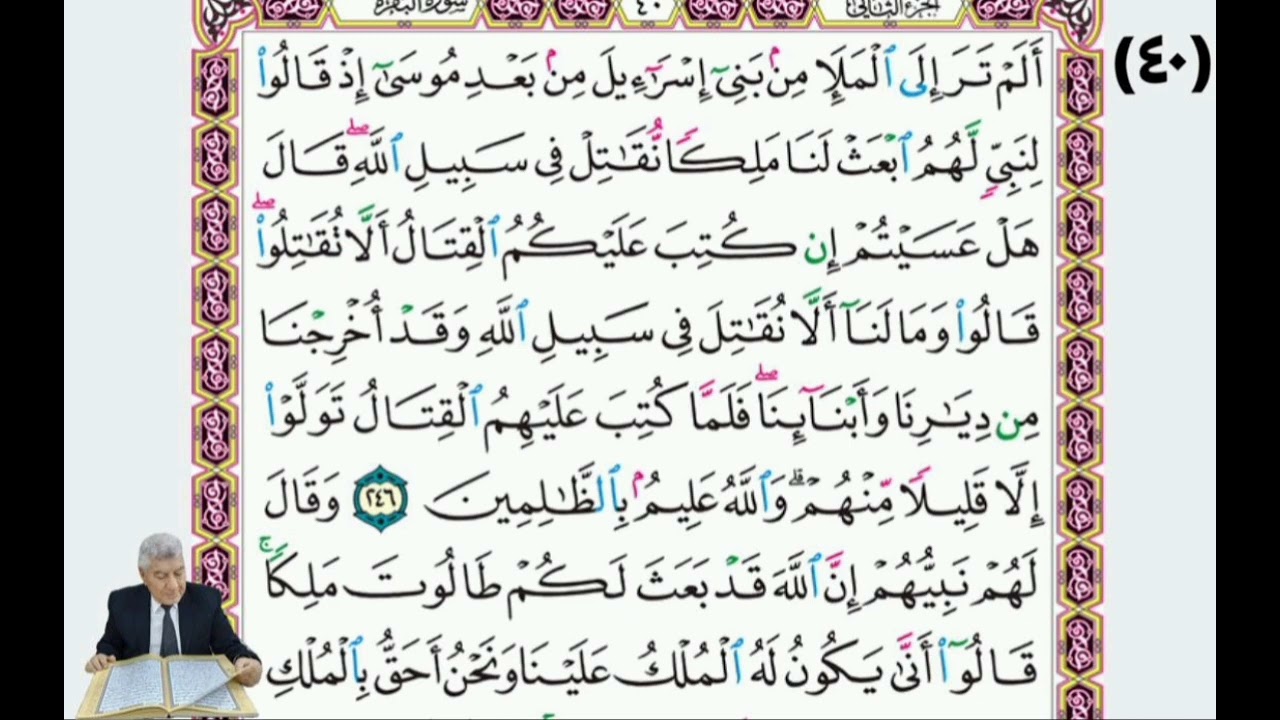 الجزء الثاني ٤٠ سورة البقرة
(٤٠)
أَلَمْ تَرَ إِلَى ٱلْمَلَإِ مِنۢ بَنِىٓ إِسْرَٰٓءِيلَ مِنۢ بَعْدِ مُوسَىٰٓ إِذْ قَالُوا۟
لِنَبِىٍّ لَّهُمُ ٱبْعَثْ لَنَا مَلِكًا نُّقَٰتِلْ فِى سَبِيلِ ٱللَّهِ ۖ قَالَ
هَلْ عَسَيْتُمْ إِن كُتِبَ عَلَيْكُمُ ٱلْقِتَالُ أَلَّا تُقَٰتِلُوا۟ ۖ
قَالُوا۟ وَمَا لَنَآ أَلَّا نُقَٰتِلَ فِى سَبِيلِ ٱللَّهِ وَقَدْ أُخْرِجْنَا
مِن دِيَٰرِنَا وَأَبْنَآئِنَا ۖ فَلَمَّا كُتِبَ عَلَيْهِمُ ٱلْقِتَالُ تَوَلَّوْا۟
إِلَّا قَلِيلًا مِّنْهُمْ ۗ وَٱللَّهُ عَلِيمٌۢ بِٱلظَّٰلِمِينَ ٢٤٦ وَقَالَ
لَهُمْ نَبِيُّهُمْ إِنَّ ٱللَّهَ قَدْ بَعَثَ لَكُمْ طَالُوتَ مَلِكًا ۚ
قَالُوٓا۟ أَنَّىٰ يَكُونُ لَهُ ٱلْمُلْكُ عَلَيْنَا وَنَحْنُ أَحَقُّ بِٱلْمُلْكِ